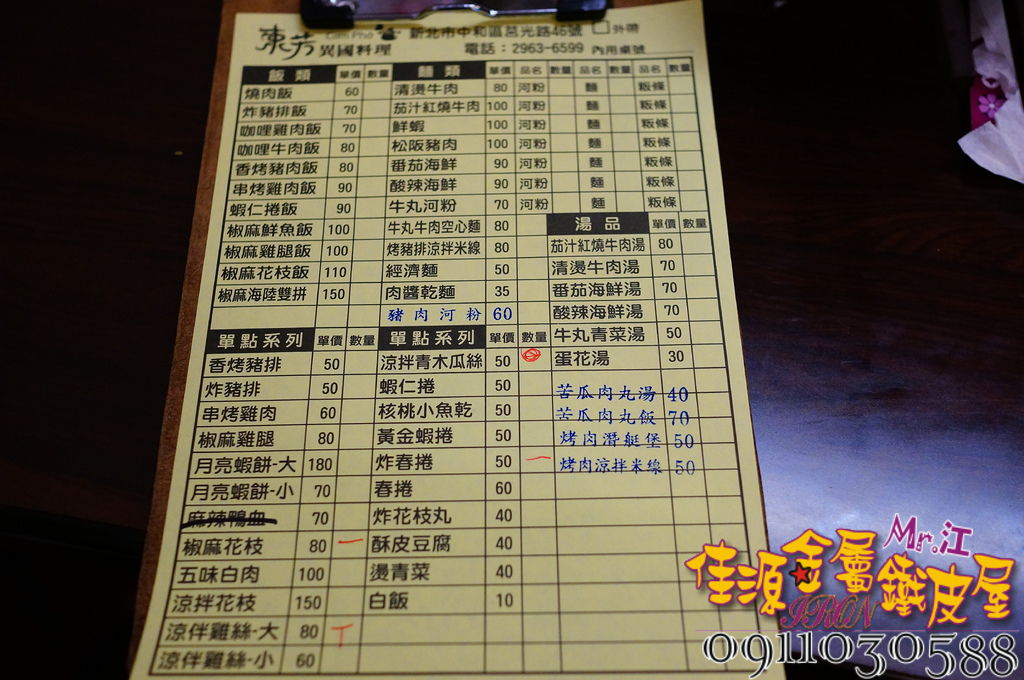 東芳異國料理 Cam Pho 新北市中和區莒光路46號 外帶
電話：2963-6599 內用桌號
飯類 單價 數量 麵類 單價 品名 數量 品名 數量 品名 數量
燒肉飯 60 清燙牛肉 80 河粉 麵 粄條
炸豬排飯 70 茄汁紅燒牛肉 100 河粉 麵 粄條
咖哩雞肉飯 70 鮮蝦 100 河粉 麵 粄條
咖哩牛肉飯 80 松阪豬肉 100 河粉 麵 粄條
香烤豬肉飯 80 番茄海鮮 90 河粉 麵 粄條
串烤雞肉飯 90 酸辣海鮮 90 河粉 麵 粄條
蝦仁捲飯 90 牛丸河粉 70 河粉 麵 粄條
椒麻鮮魚飯 100 牛丸牛肉空心麵 80 湯品 單價 數量
椒麻雞腿飯 100 烤豬排涼拌米線 80 茄汁紅燒牛肉湯 80
椒麻花枝飯 110 經濟麵 50 清燙牛肉湯 70
椒麻海陸雙拼 150 肉醬乾麵 35 番茄海鮮湯 70
豬肉河粉 60 酸辣海鮮湯 70
單點系列 單價 數量 單點系列 單價 數量 牛丸青菜湯 50
香烤豬排 50 涼拌青木瓜絲 50 蛋花湯 30
炸豬排 50 蝦仁捲 50 苦瓜肉丸湯 40
串烤雞肉 60 核桃小魚乾 50 苦瓜肉丸飯 70
椒麻雞腿 80 黃金蝦捲 50 烤肉潛艇堡 50
月亮蝦餅-大 180 炸春捲 50 一 烤肉涼拌米線 50
月亮蝦餅-小 70 春捲 60
麻辣鴨血 70 炸花枝丸 40
椒麻花枝 80 一 酥皮豆腐 40
五味白肉 100 燙青菜 40
涼拌花枝 150 白飯 10
涼伴雞絲-大 80 ㄒ
涼伴雞絲-小 60
Mr.江
佳源金屬鐵皮屋
IRON
0911030588